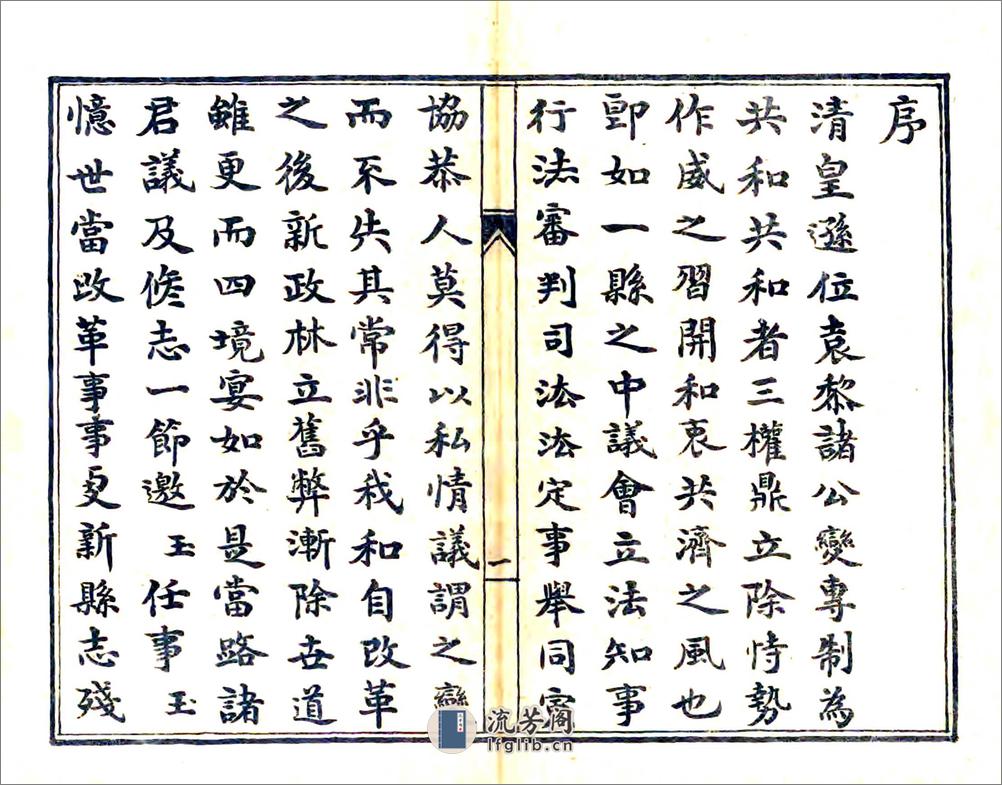 序
清皇遜位袁黎諸公變專制為
共和共和者三權鼎立除恃勢
作威之習開和衷共濟之風也
即如一縣之中議會立法知事
行法審判司法法定事舉同寅
協恭人莫得以私情議謂之變
而不失其常非乎我和自改革
之後新政林立舊弊漸除世道
雖更而四境宴如於是當路諸
君議及修志一節邀玉任事玉
憶世當改革事事更新縣志殘
一
流芳阁
lfglib.cn